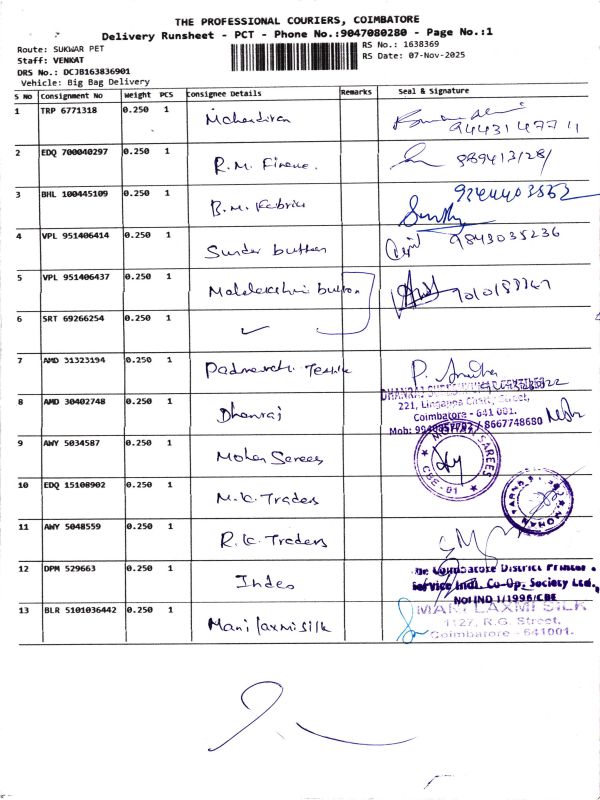 THE PROFESSIONAL COURIERS, COIMBATORE
Delivery Runsheet - PCT - Phone No.:9047080280 - Page No.:1
Route: SUKWAR PET
RS No.: 1638369
Staff: VENKAT
RS Date: 07-Nov-2025
DRS No.: DCJB163836901
Vehicle: Big Bag Delivery
S NO Consignment No Weight PCS Consignee Details Remarks Seal & Signature
1 TRP 6771318 0.250 1
2 EDQ 700040297 0.250 1 R.M. Finance.
3 BHL 100445109 0.250 1 B.M. Fabrics
4 VPL 951406414 0.250 1 Sunder button 9843035236
5 VPL 951406437 0.250 1 Mahalakshmi button
6 SRT 69266254 0.250 1 ✓
7 AMD 31323194 0.250 1 Padmavathi Textile P.
8 AMD 30402748 0.250 1 Dhanraj
221, Lingappa Chetty Street,
Coimbatore - 641 001.
/ 8667748680
9 AWY 5034587 0.250 1 Mohan Sarees
MOHAN SAREES CBE - 01
10 EDQ 15108902 0.250 1 M.K. Traders
11 AWY 5048559 0.250 1 R.K. Traders
12 DPM 529663 0.250 1 Indco
The Coimbatore District Printer
Service Indl. Co-Op. Society Ltd.,
No: IND 1/1996/CBE
13 BLR 5101036442 0.250 1 Mani laxmi silk
MANI LAXMI SILK
1127, R.G. Street,
Coimbatore - 641001.